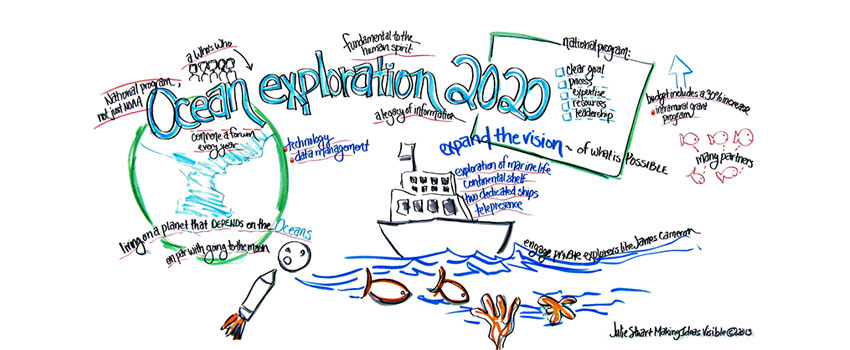 a Who's Who
National program,
not just NOAA
fundamental to the
human spirit
Ocean exploration 2020
a legacy of information
national program:
clear goal
process
expertise
resources
leadership
budget includes a 30% increase
intramural grant
program
many partners
convene a forum
every year
technology
data management
expand the vision ~ of what is POSSIBLE
exploration of marine life
continental shelf
two dedicated ships
telepresence
living on a planet that DEPENDS on the Oceans
on par with going to the moon
engage private explorers like James Cameron
Julie Stuart Making Ideas Visible © 2013